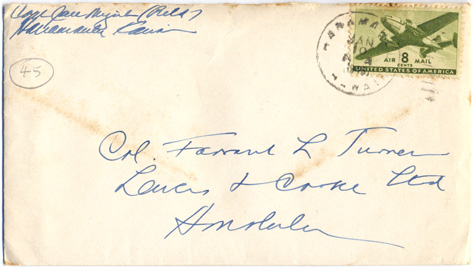 Capt Jack
45
JAN
AIR 8 MAIL
CENTS
UNITED STATES OF AMERICA
Col. Farrant L Turner
Lewers & Cooke Ltd
Honolulu